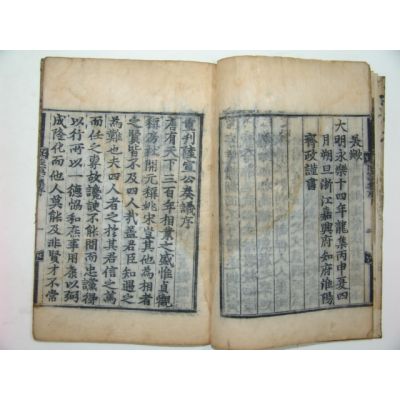 大明永樂十四年龍集丙申夏四
月朔旦浙江嘉興府知府淮陽
齊政謹書
重刊陸宣公奏議序
唐有天下三百年相業之盛惟貞觀
稱房杜開元稱姚宋豈其他為相者
之賢皆不及四人哉蓋君臣知遇之
為難也夫四人者之於其君信之篤
而任之專故讒諛不能間而忠讜得
以行而一德協和而庶事用康以弼
成隆化而他人莫能及非賢才不常